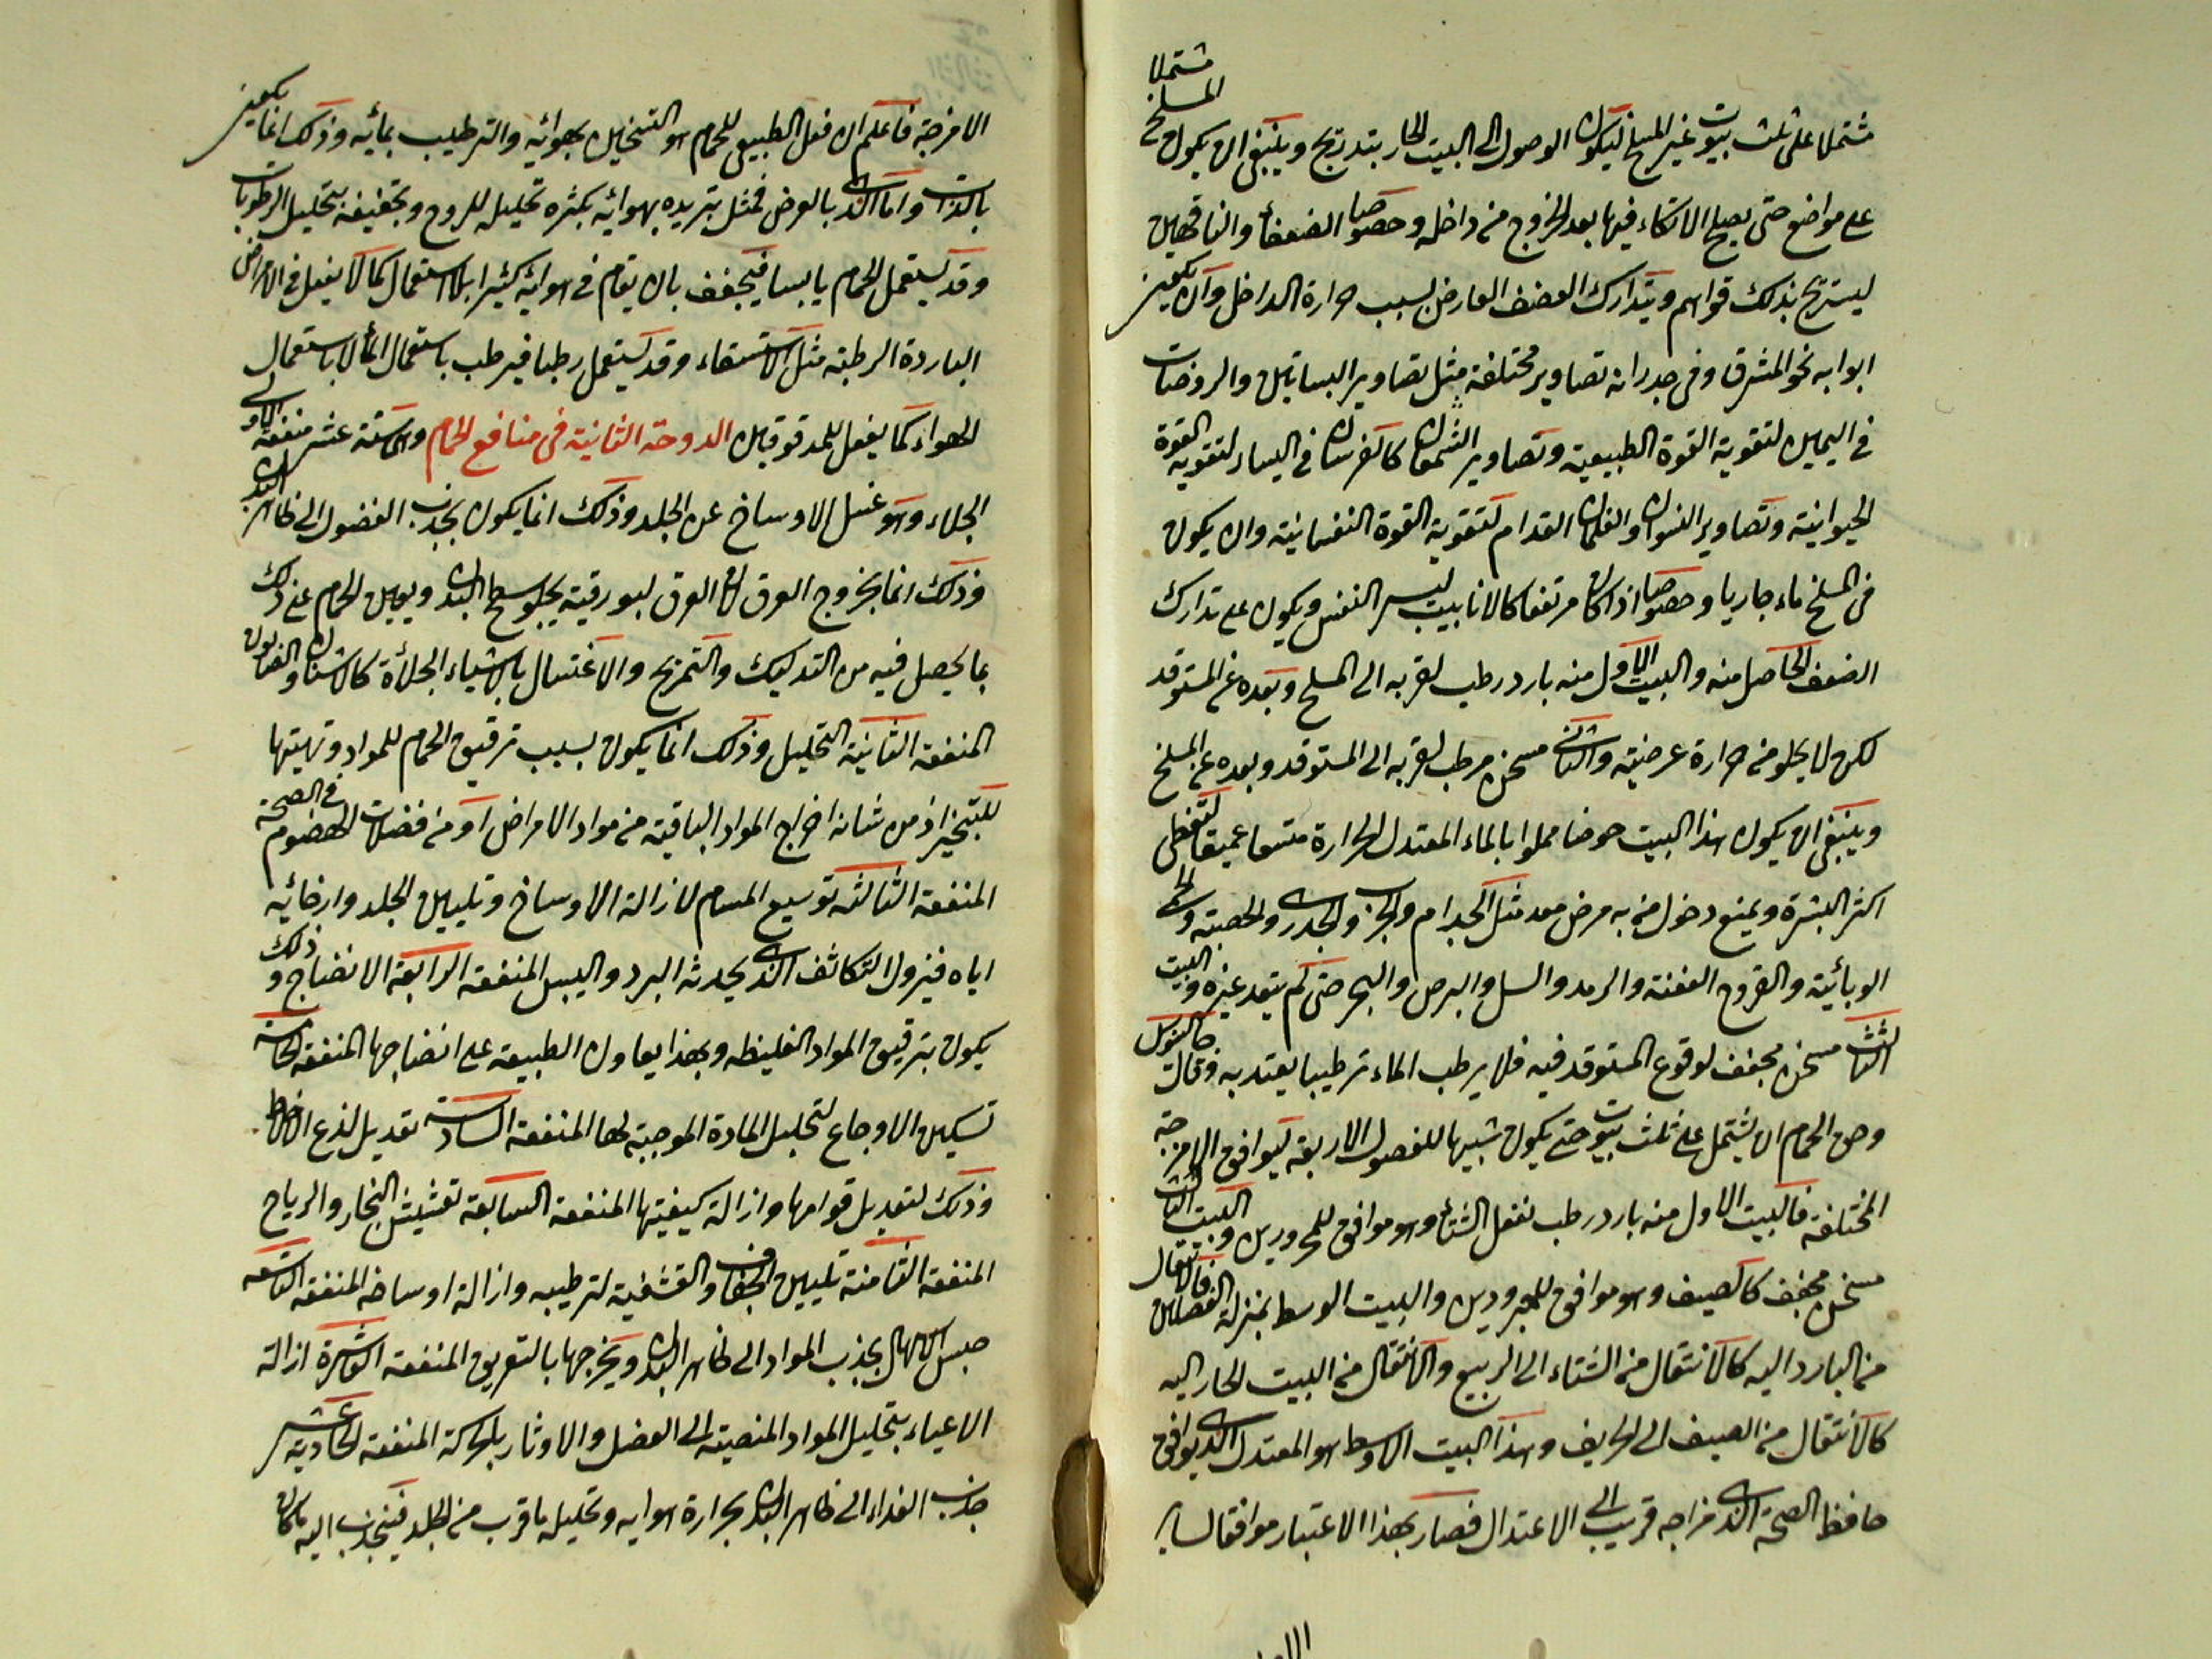 مشتملا على ثلث بيوت غير المسلخ ليكون الوصول الى البيت الحار بتدريج وينبغي ان يكون المسلخ مشتملا
على مواضع حتى يصلح الاتكاء فيها بعد الخروج من داخله وخصوصا الضعفاء والناقهين
ليستريح بذلك قواهم ويتدارك الضعف العارض بسبب حرارة الداخل وان يكون
ابوابه نحو المشرق وفي جدرانه تصاوير مختلفة مثل تصاوير البساتين والروضات
في اليمين لتقوية القوة الطبيعية وتصاوير الشجعان كالفرسان في اليسار لتقوية القوة
الحيوانية وتصاوير النسوان والغلمان القدام لتقوية القوة النفسانية وان يكون
في المسلخ ماء جاريا وخصوصا اذا كان مرتفعا كالانابيب ليسر النفس ويكون على تدارك
الضعف الحاصل منه والبيت الاول منه بارد رطب لقربه الى المسلخ وبعده عن المستوقد
لكن لا يخلو من حرارة عرضية والثاني مسخن مرطب لقربه الى المستوقد وبعده عن المسلخ
وينبغي ان يكون هذا البيت حوضا مملوا بالماء المعتدل الحرارة متسعا عميقا لتغطى
اكثر البشرة ويمنع دخول من به مرض معد مثل الجذام والجرب والجدري والحصبة والحمى
الوبائية والقروح العفنة والرمد والسل والبرص والبخر حتى لم يتعد غيره والبيت
الثالث مسخن مجفف لوقوع المستوقد فيه فلا يرطب الماء ترطيبا يعتد به وقال جالينوس
وحق الحمام ان يشتمل على ثلث بيوت حتى يكون شبيها للفصول الاربعة ليوافق الامزجة
المختلفة فالبيت الاول منه بارد رطب كفعل الشتاء وهو موافق للمحرورين والبيت الثالث
مسخن مجفف كالصيف وهو موافق للمبرودين والبيت الوسط بمنزلة الفصلين فالانتقال
من البارد اليه كالانتقال من الشتاء الى الربيع والانتقال من البيت الحار اليه
كالانتقال من الصيف الى الخريف وهذا البيت الاوسط هو المعتدل الذي يوافق
حافظ الصحة الذي مزاجه قريب الى الاعتدال فصار بهذا الاعتبار موافقا لساير
الامزجة فاعلم ان فعل الطبيعي للحمام هو التسخين بهوائه والترطيب بمائه وذلك انما يكون
بالذات واما الذي بالعرض فمثل تبريده بهوائه بكثرة تحليله للروح وتجفيفه بتحليل الرطوبات
وقد يستعمل الحمام يابسا فيجفف بان يقام في هوائه كثيرا بلا استعمال كما لا يفعل في الامراض
الباردة الرطبة مثل الاستسقاء وقد يستعمل رطبا فيرطب باستعمال الماء لا باستعمال
الهواء كما يفعل للمدقوقين الدوحة الثانية في منافع الحمام وهي ستة عشر منفعة الاولى
الجلاء وهو غسل الاوساخ عن الجلد وذلك انما يكون بجذب الفضول الى ظاهر البدن
وذلك انما بخروج العرق لان العرق لبورقيته يجلو سطح البدن ويعين الحمام على ذلك
بما يحصل فيه من التدليك والتمريخ والاغتسال بالاشياء الجلاءة كالاشنان والصابون
المنفعة الثانية التحليل وذلك انما يكون بسبب ترقيق الحمام للمواد وتهيتها
للتبخير اذ من شانه اخراج المواد الباقية من مواد الامراض او من فضلات الهضوم في الصحة
المنفعة الثالثة توسيع المسام لازالة الاوساخ وتليين الجلد وارخائه
اياه فيزول التكاثف الذي يحدثه البرد واليبس المنفعة الرابعة الانضاج وذلك
يكون بترقيق المواد الغليظه وبهذا يعاون الطبيعة على انضاجها المنفعة الخامسة
تسكين الاوجاع لتحليل المادة الموجبة لها المنفعة السادسة تعديل لذع الاخلاط
وذلك لتعديل قوامها وازالة كيفيتها المنفعة السابعة تفشيش البخار والرياح
المنفعة الثامنة تليين الجفاف والقشفية لترطيبه وازالة اوساخه المنفعة التاسعة
حبس الاسهال بجذب المواد الى ظاهر البدن ويخرجها بالتعريق المنفعة العاشرة ازالة
الاعياء بتحليل المواد المنصبة الى العضل والاوتار بالحركة المنفعة الحادية عشر
جذب الغذاء الى ظاهر البدن بحرارة هوايه وتحليله ما قرب من الجلد فينجذب اليه ما كان